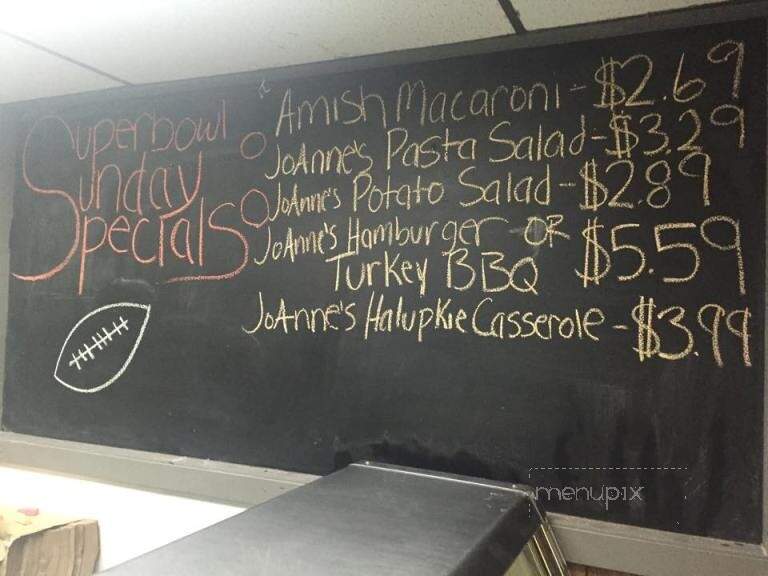 Superbowl
Sunday
Specials
Amish Macaroni - $2.69
JoAnne's Pasta Salad - $3.29
JoAnne's Potato Salad - $2.89
JoAnne's Hamburger OR
Turkey BBQ $5.59
JoAnne's Halupkie Casserole - $3.99
menupix